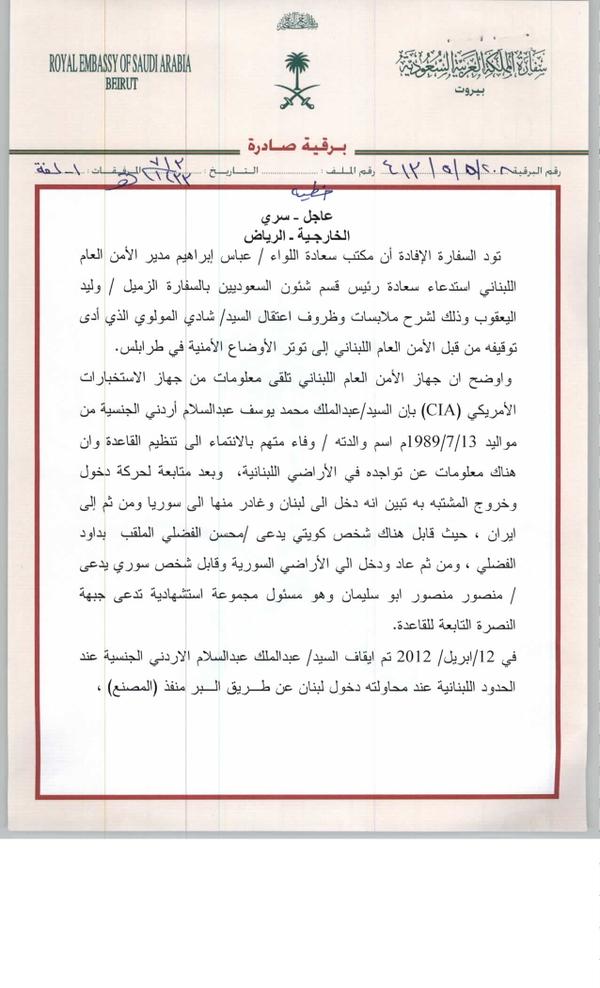 ROYAL EMBASSY OF SAUDI ARABIA
BEIRUT
سفارة المملكة العربية السعودية
بيروت
برقية صادرة
رقم البرقية ٤١٢/٥/٥/٢٠٨ رقم الملف : التاريخ : ٧/٢ ١٤٣٣ المرفقات : ١ـ لفة
عاجل - سري
الخارجية - الرياض
تود السفارة الإفادة أن مكتب سعادة اللواء / عباس إبراهيم مدير الأمن العام
اللبناني استدعاء سعادة رئيس قسم شئون السعوديين بالسفارة الزميل / وليد
اليعقوب وذلك لشرح ملابسات وظروف اعتقال السيد/ شادي المولوي الذي أدى
توقيفه من قبل الأمن العام اللبناني إلى توتر الأوضاع الأمنية في طرابلس.
واوضح ان جهاز الأمن العام اللبناني تلقى معلومات من جهاز الاستخبارات
الأمريكي (CIA) بإن السيد/عبدالملك محمد يوسف عبدالسلام أردني الجنسية من
مواليد 1989/7/13م اسم والدته / وفاء متهم بالانتماء الى تنظيم القاعدة وان
هناك معلومات عن تواجده في الأراضي اللبنانية، وبعد متابعة لحركة دخول
وخروج المشتبه به تبين انه دخل الى لبنان وغادر منها الى سوريا ومن ثم إلى
ايران ، حيث قابل هناك شخص كويتي يدعى /محسن الفضلي الملقب بداود
الفضلي ، ومن ثم عاد ودخل الي الأراضي السورية وقابل شخص سوري يدعى
/ منصور منصور ابو سليمان وهو مسئول مجموعة استشهادية تدعى جبهة
النصرة التابعة للقاعدة.
في 12/ابريل/ 2012 تم ايقاف السيد/ عبدالملك عبدالسلام الاردني الجنسية عند
الحدود اللبنانية عند محاولته دخول لبنان عن طريق البر منفذ (المصنع) ،